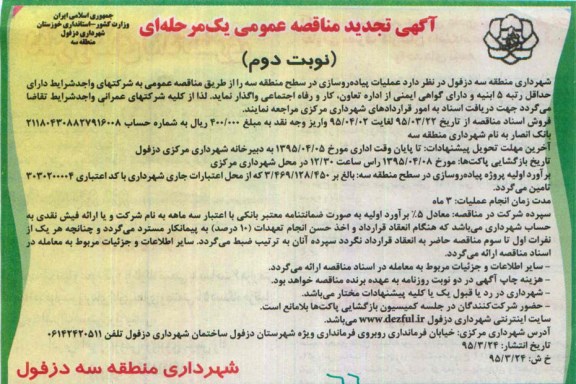 جمهوری اسلامی ایران
وزارت کشور-استانداری خوزستان
شهرداری دزفول
منطقه سه
آگهی تجدید مناقصه عمومی یک‌مرحله‌ای
(نوبت دوم)
شهرداری منطقه سه دزفول در نظر دارد عملیات پیاده‌روسازی در سطح منطقه سه را از طریق مناقصه عمومی به شرکتهای واجدشرایط دارای
حداقل رتبه ۵ ابنیه و دارای گواهی ایمنی از اداره تعاون، کار و رفاه اجتماعی واگذار نماید. لذا از کلیه شرکتهای عمرانی واجدشرایط تقاضا
می‌گردد جهت دریافت اسناد به امور قراردادهای شهرداری مرکزی مراجعه نمایند.
فروش اسناد مناقصه از تاریخ ۹۵/۰۳/۲۲ لغایت ۹۵/۰۴/۰۲ واریز وجه نقد به مبلغ ۴۰۰/۰۰۰ ریال به شماره حساب ۲۱۱۸۰۴۳۰۸۸۲۷۹۱۶۰۰۸
بانک انصار به نام شهرداری منطقه سه
آخرین مهلت تحویل پیشنهادات: تا پایان وقت اداری مورخ ۱۳۹۵/۰۴/۰۵ به دبیرخانه شهرداری مرکزی دزفول
تاریخ بازگشایی پاکت‌ها: مورخ ۱۳۹۵/۰۴/۰۸ راس ساعت ۱۲/۳۰ در محل شهرداری مرکزی
برآورد اولیه پروژه پیاده‌روسازی در سطح منطقه سه: بالغ بر ۳/۴۶۹/۱۲۸/۴۵۰ که از محل اعتبارات جاری شهرداری با کد اعتباری ۳۰۳۰۲۰۰۰۰۴
تامین می‌گردد.
مدت زمان انجام عملیات: ۳ ماه
سپرده شرکت در مناقصه: معادل ۵٪ برآورد اولیه به صورت ضمانتنامه معتبر بانکی با اعتبار سه ماهه به نام شرکت و یا ارائه فیش نقدی به
حساب شهرداری می‌باشد که هنگام انعقاد قرارداد و اخذ حسن انجام تعهدات (۱۰ درصد) به پیمانکار مسترد می‌گردد و چنانچه هر یک از
نفرات اول تا سوم مناقصه حاضر به انعقاد قرارداد نگردد سپرده آنان به ترتیب ضبط می‌گردد. سایر اطلاعات و جزئیات مربوط به معامله در
اسناد مناقصه ارائه می‌گردد.
- سایر اطلاعات و جزئیات مربوط به معامله در اسناد مناقصه ارائه می‌گردد.
- هزینه چاپ آگهی در دو نوبت روزنامه به عهده برنده مناقصه خواهد بود.
- شهرداری در رد یا قبول یک یا کلیه پیشنهادات مختار می‌باشد.
- حضور شرکت‌کنندگان در جلسه کمیسیون بازگشایی پاکت‌ها بلامانع است.
سایت اینترنتی شهرداری دزفول www.dezful.ir می‌باشد.
آدرس شهرداری مرکزی: خیابان فرمانداری روبروی فرمانداری ویژه شهرستان دزفول ساختمان شهرداری دزفول تلفن ۰۶۱۴۲۴۲۰۵۱۱
تاریخ انتشار: ۹۵/۳/۲۴
خ ش: ۹۵/۳/۲۴
شهرداری منطقه سه دزفول